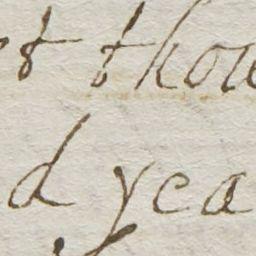 t thou
d yea